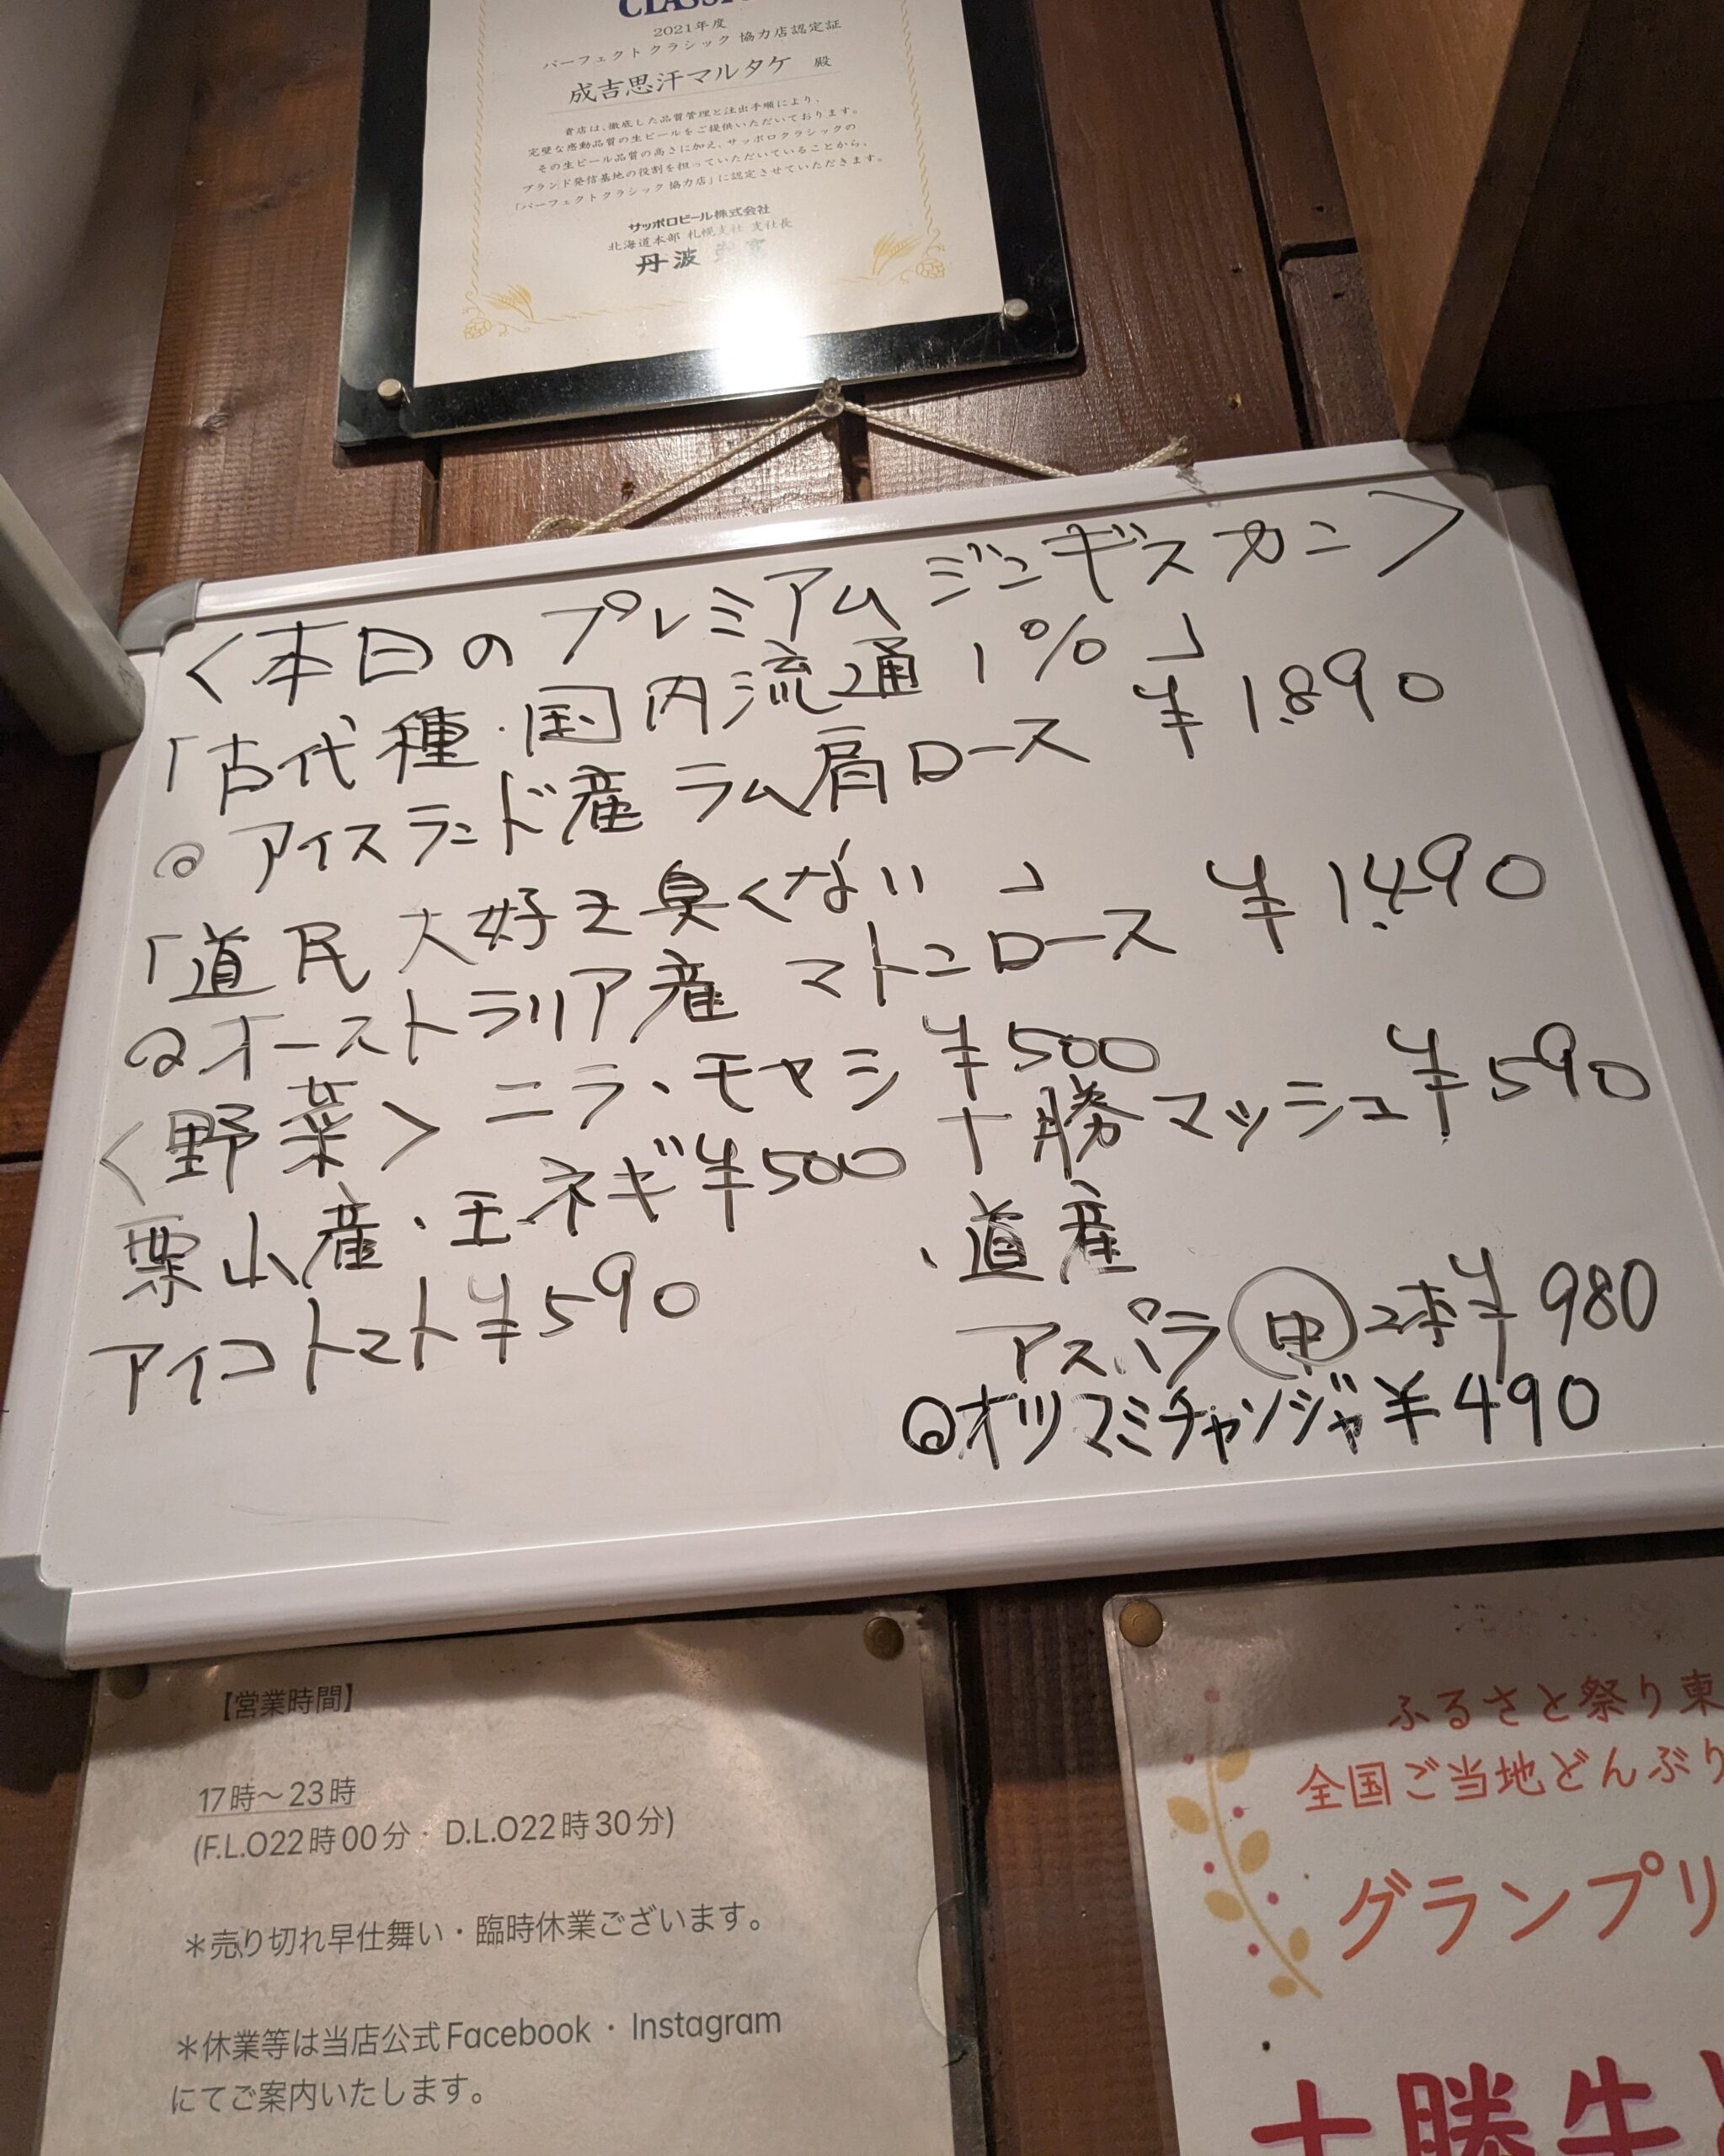 2021年度
パーフェクトクラシック 協力店認定証
成吉思汗マルタケ 殿
貴店は、徹底した品質管理と注出手順により、
完璧な感動品質の生ビールをご提供いただいております。
その生ビール品質の高さに加え、サッポロクラシックの
ブランド発信基地の役割を担っていただいていることから、
「パーフェクトクラシック 協力店」に認定させていただきます。
サッポロビール株式会社
北海道本部 札幌支社 支社長
丹波
<本日のプレミアムジンギスカン>
「古代種・国内流通1%」
◎アイスランド産 ラム肩ロース ¥1.890
「道民大好き臭くない」
◎オーストラリア産 マトンロース ¥1.490
<野菜> ニラ・モヤシ ¥500
栗山産・玉ネギ¥500
アイコトマト¥590
十勝マッシュ¥590
・道産
アスパラ 2本¥980
◎オツマミチャンジャ¥490
【営業時間】
17時～23時
(F.L.O22時00分・D.L.O22時30分)
＊売り切れ早仕舞い・臨時休業ございます。
＊休業等は当店公式Facebook・Instagram
にてご案内いたします。
ふるさと祭り東
全国ご当地どんぶり
グランプリ
十勝牛